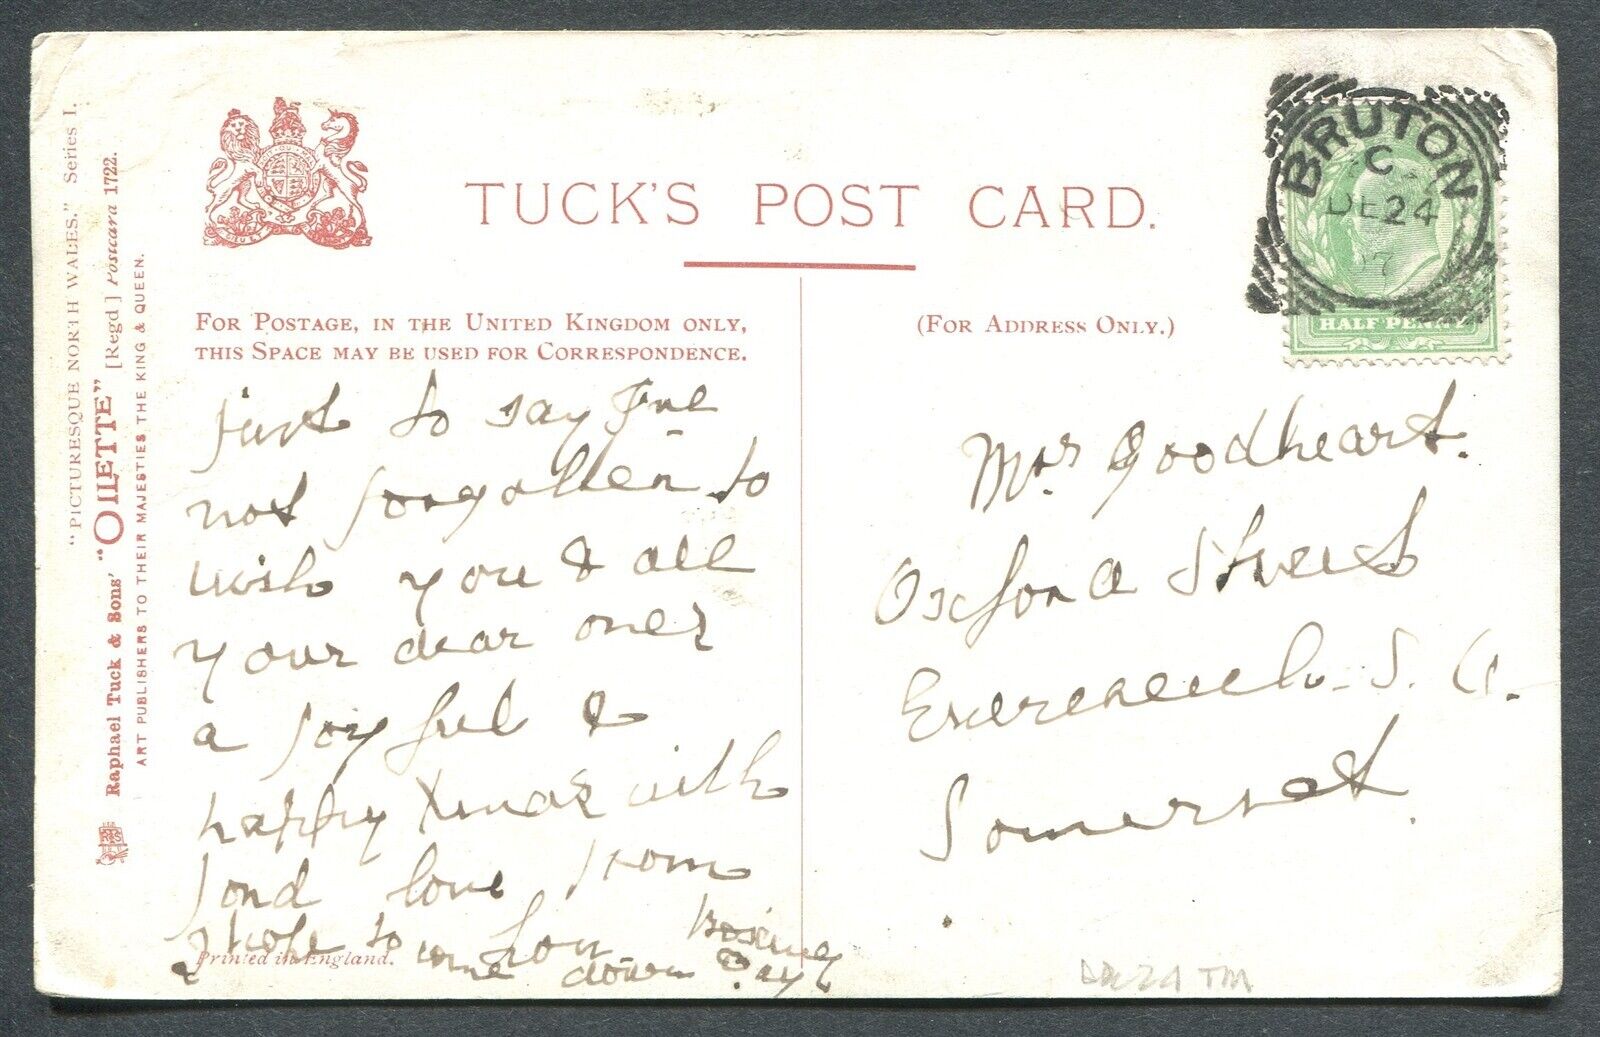 "PICTURESQUE NORTH WALES." Series I.
Raphael Tuck & Sons' "OILETTE" [Regd.] Postcard 1722.
ART PUBLISHERS TO THEIR MAJESTIES THE KING & QUEEN.
TUCK'S POST CARD.
FOR POSTAGE, IN THE UNITED KINGDOM ONLY,
THIS SPACE MAY BE USED FOR CORRESPONDENCE.
(FOR ADDRESS ONLY.)
BRUTON
C
DE 24
07
HALF PENNY
just to say I've
not forgotten to
wish you & all
your dear ones
a joyful &
happy Xmas with
fond love from
I hope to
come down
Boxing
Day
Printed in England.
Mrs Goodheart.
Oxford Street
Evercreech. S.
Somerset.